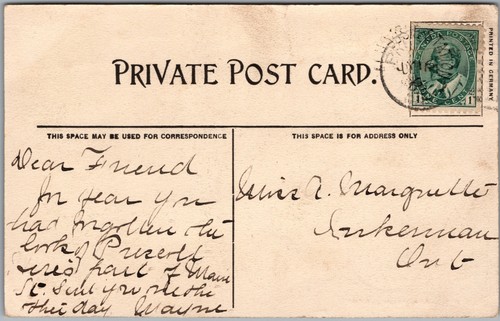 PRIVATE POST CARD.
PRINTED IN GERMANY
1 1
THIS SPACE MAY BE USED FOR CORRESPONDENCE
THIS SPACE IS FOR ADDRESS ONLY
Dear Friend
In fear you
had forgotten the
look of Prescott
part of Main
St. Sent you the
other day Wayne
Miss Marquette
Inkerman
Ont